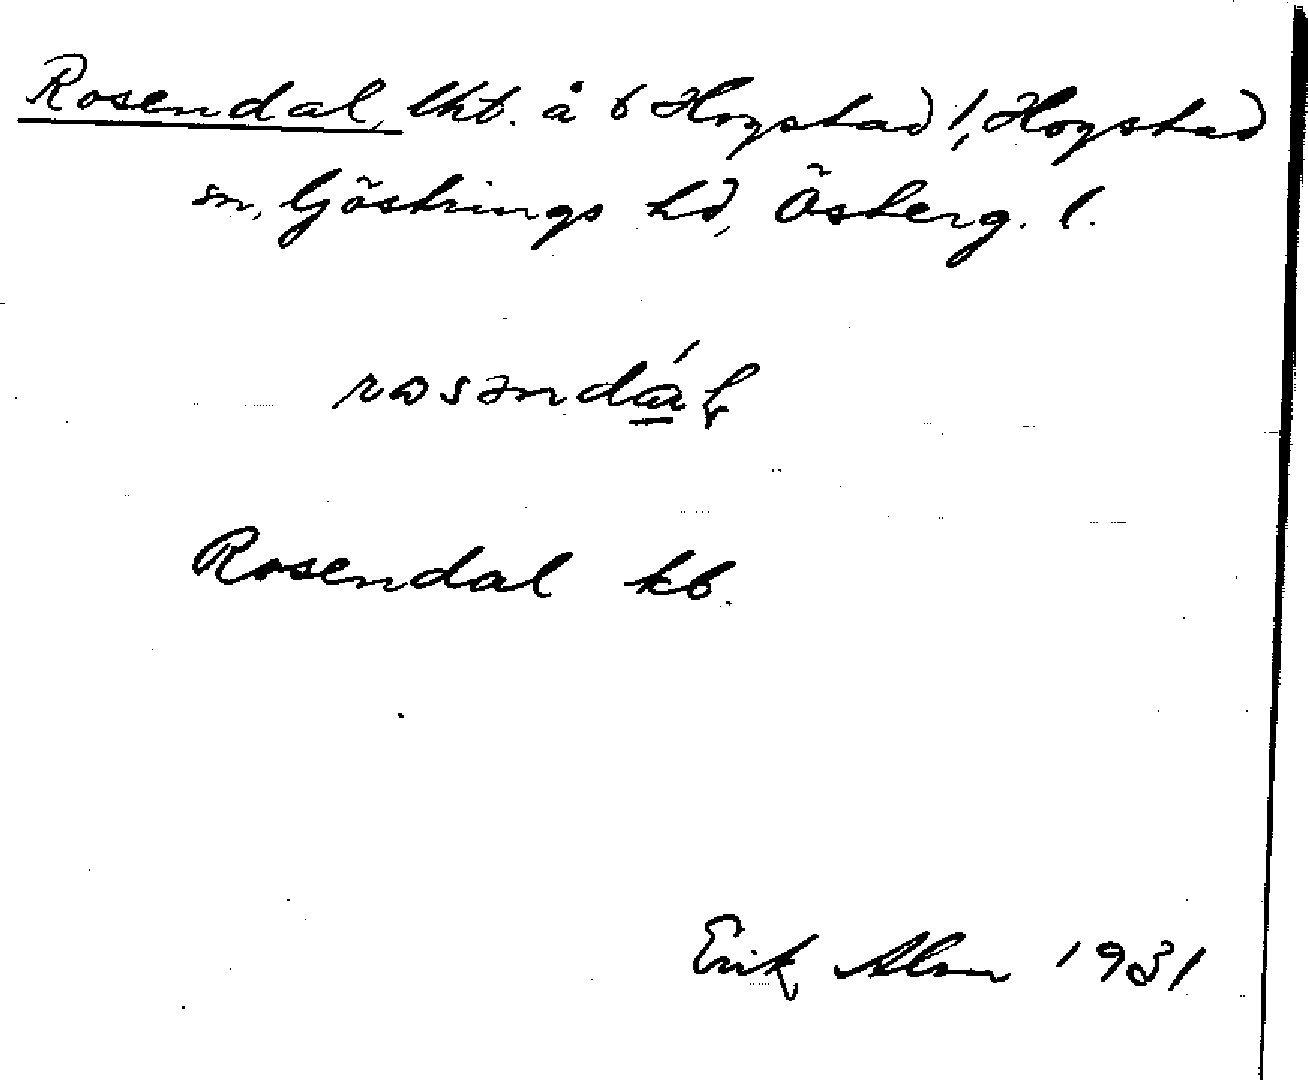 Rosendal, lht. å 6 Hogstad 1, Hogstad
sn, Göstrings hd, Österg. l.
rosəndáɫ
Rosendal kb.
Erik Alm 1931